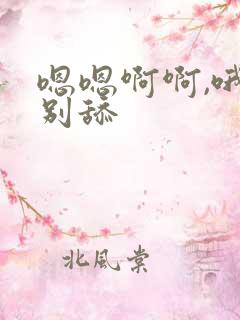 嗯嗯啊啊,哦
别舔
北風棠